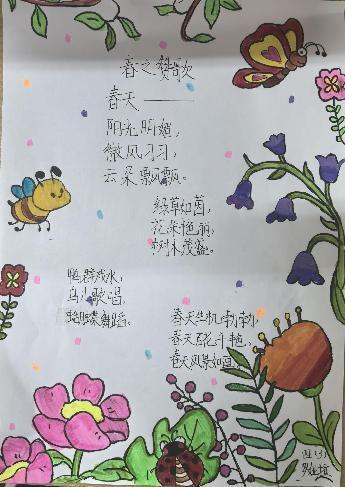 春之赞歌
春天———
阳光明媚，
微风习习，
云朵飘飘。
绿草如茵，
花朵艳丽，
树木茂盛。
鸭群戏水，
鸟儿歌唱，
蝴蝶舞蹈。
春天生机勃勃，
春天百花斗艳，
春天风景如画。